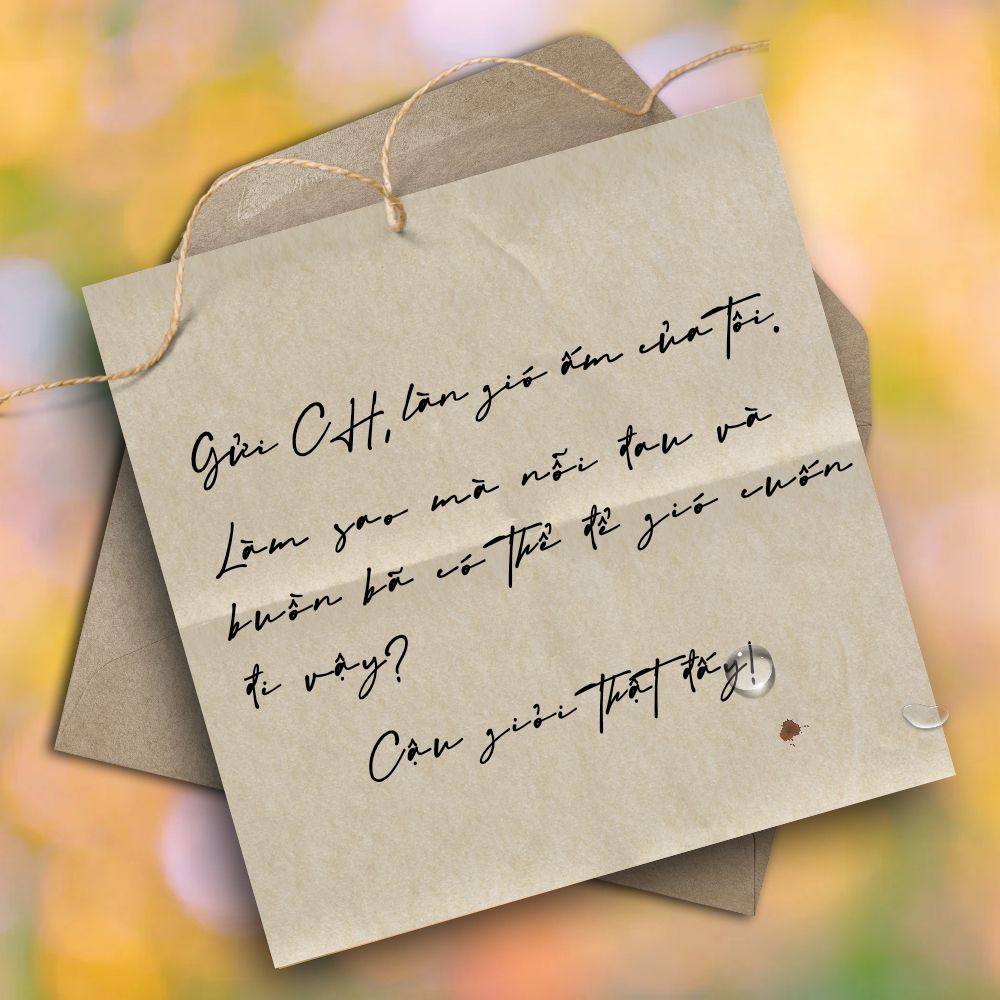 Gửi CH, làn gió ấm của tôi.
Làm sao mà nỗi đau và
buồn bã có thể để gió cuốn
đi vậy?
Cậu giỏi thật đấy!